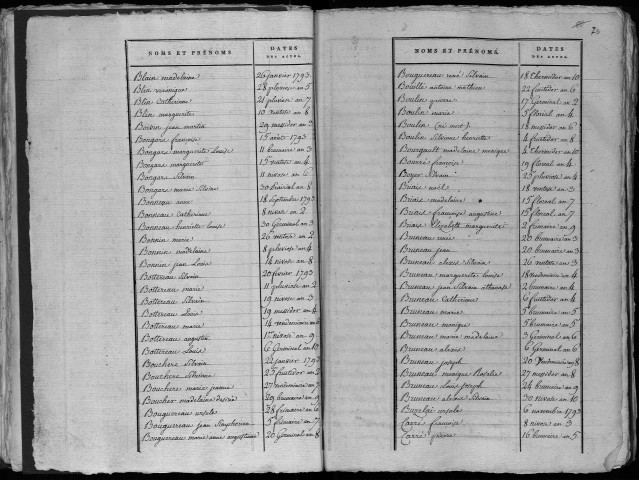 NOMS ET PRÉNOMS. DATES DES ACTES.
Blain madelaine 26 janvier 1793
Blin veronique 28 pluviose an 5
Blin Catherine 21 pluviose an 7
Blin marguerite 10 ventose an 8
Boivin jean martin 29 messidor an 3
Bongars françoise 15 août 1793
Bongars marguerite Louise 11 brumaire an 3
Bongars marguerite 15 ventose an 4
Bongars Silvin 11 nivose an 6
Bongars marie Silvine 30 prairial an 8
Bonneau anne 18 Septembre 1793
Bonneau Catherine 8 nivose an 2
Bonneau henriette louise 30 Germinal an 3
Bonnin marie 26 ventose an 2
Bonnin madelaine 8 pluviose an 4
Bonnin jean Louis 14 nivose an 8
Bottereau Silvin 20 fevrier 1793
Bottereau marie 11 pluviose an 2
Bottereau Silvin 19 nivose an 3
Bottereau Louis 19 messidor an 4
Bottereau marie 14 vendemiaire an
Bottereau augustin nivose an 9
Bottereau Louis 6 Germinal an 10
Bouchere Silvin 22 janvier 1793
Bouchere Silvine 25 fructidor an 2
Bouchere marie jeanne 27 vendemiaire an 7
Boucher madelaine 29 brumaire an 9
Bouguereau ursule 28 frimaire an 6
Bouguereau jean 5 frimaire an 7
Bouguereau marie anne augustine 20 Germinal an 8
NOMS ET PRÉNOMS. DATES DES ACTES.
Bouguereau rené Silvain 18 thermidor an 10
Bouillé antoine mathieu 22 fructidor an 6
Boulin pierre 17 Germinal an 2
Boulin marie 5 floreal an 4
Boulin (né mort) 18 messidor an 6
Boulin Silvine henriette 4 fructidor an 8
Bourgault madelaine monique 4 thermidor an 10
Bourré françoise 19 floreal an 4
Boyer Silvain 23 pluviose an 4
Briais noël 18 ventose an 3
Briais madelaine 15 floreal an 7
Briais françoise augustine 15 floreal an 7
Briais Elisabeth marguerite 2 frimaire an 9
Bruneau rené 20 brumaire an 3
Bruneau jean 20 brumaire an 3
Bruneau alexis Silvain 26 ventose an 3
Bruneau marguerite louise 18 vendemiaire an 4
Bruneau jean Silvain athanase 2 brumaire an 4
Bruneau Catherine 6 fructidor an 4
Bruneau marie 5 brumaire an 5
Bruneau monique 5 brumaire an 5
Bruneau marie madelaine 3 Germinal an 6
Bruneau alexis 6 Germinal an 6
Bruneau joseph 20 Vendemiaire an 8
Bruneau monique Rosalie 27 messidor an 8
Bruneau Louis joseph 24 brumaire an 9
Bruneau alexis Silvin 30 nivose an 10
Buzelgé ursule 6 novembre 1793
Carré françoise 8 nivose an 3
Carré pierre 16 brumaire an 5